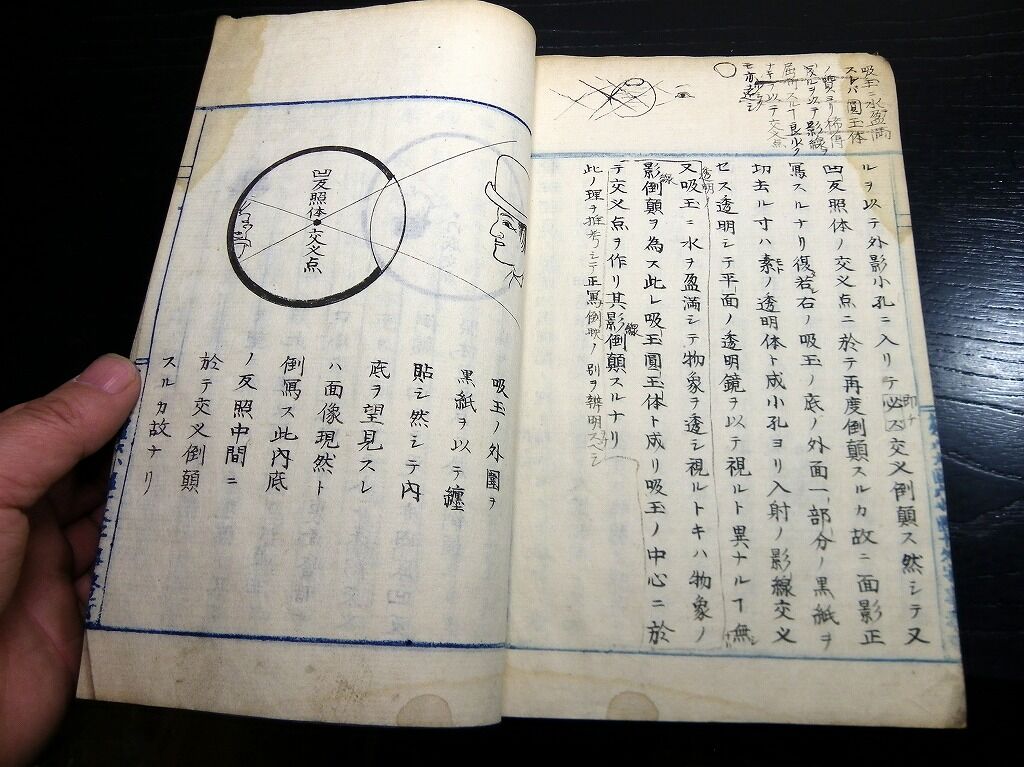 吸玉ニ水盈満
スレバ圓玉体
屈折スルコ良ルク
ナキヲ以テ交又点
ルヲ以テ外影小孔ニ入リテ必ス交叉倒顛ス然シテ又
即チ
凹反照体ノ交叉点ニ於テ再度倒顛スルカ故ニ面影正
寫スルナリ復若シ右ノ吸玉ノ底ノ外面一部分ノ黒紙ヲ
切去ル寸ハ素ノ透明体ト成小孔ヨリ入射ノ影線交叉
モト
セス透明シテ平面ノ透明鏡ヲ以テ視ルト異ナルヿ無シ
透明ノ
又吸玉ニ水ヲ盈満シテ物象ヲ透シ視ルトキハ物象ノ
影倒顛ヲ為ス此レ吸玉圓玉体ト成リ吸玉ノ中心ニ於
線
テ交叉点ヲ作リ其影倒顛スルナリ
線
此ノ理ヲ推考シテ正寫倒映ノ別ヲ辨明スヘシ
凹反照体
交叉点
吸玉ノ外圍ヲ
黒紙ヲ以テ纏
貼シ然シテ内
底ヲ望見スレ
ハ面像現然ト
倒寫ス此内底
ノ反照中間ニ
於テ交叉倒顛
スルカ故ナリ